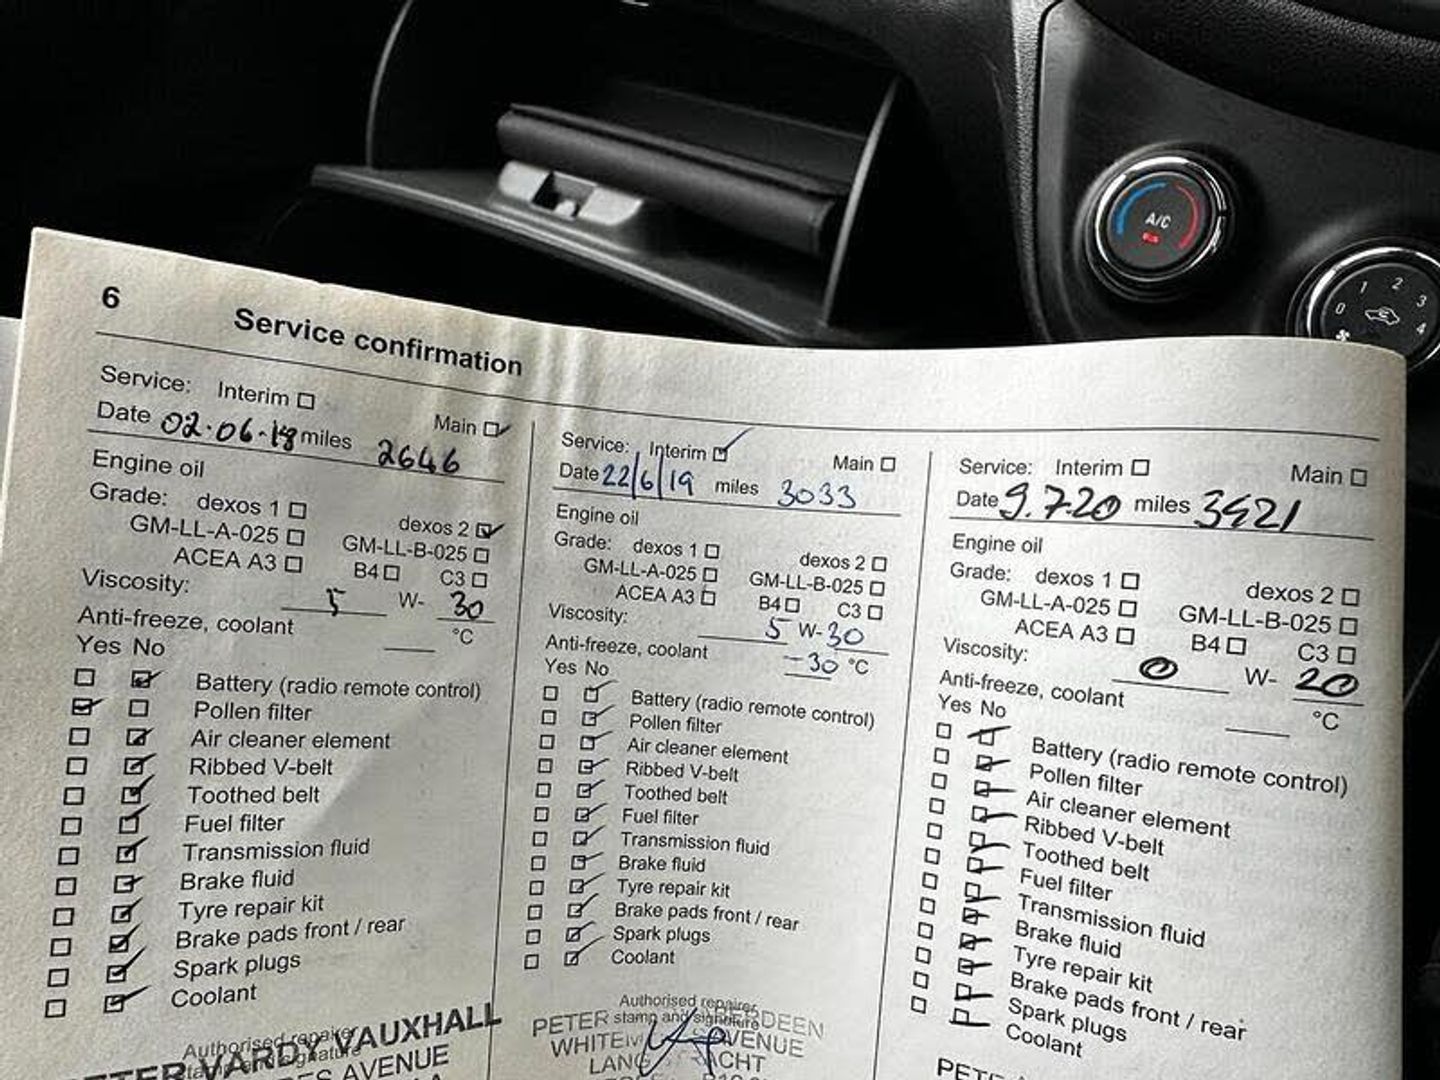 A/C
0 1 2 3 4
6 Service confirmation
Service: Interim
Main
Date 02.06.18 miles 2646
Engine oil
Grade: dexos 1
dexos 2
GM-LL-A-025
GM-LL-B-025
ACEA A3
B4 C3
Viscosity: 5 W- 30
Anti-freeze, coolant °C
Yes No
Battery (radio remote control)
Pollen filter
Air cleaner element
Ribbed V-belt
Toothed belt
Fuel filter
Transmission fluid
Brake fluid
Tyre repair kit
Brake pads front / rear
Spark plugs
Coolant
Authorised repairer
stamp and signature
PETER VARDY VAUXHALL
AVENUE
Service: Interim Main
Date 22/6/19 miles 3033
Engine oil
Grade: dexos 1 dexos 2
GM-LL-A-025 GM-LL-B-025
ACEA A3 B4 C3
Viscosity: 5 W-30
Anti-freeze, coolant -30 °C
Yes No
Battery (radio remote control)
Pollen filter
Air cleaner element
Ribbed V-belt
Toothed belt
Fuel filter
Transmission fluid
Brake fluid
Tyre repair kit
Brake pads front / rear
Spark plugs
Coolant
Authorised repairer
stamp and signature
PETER ABERDEEN
AVENUE
Service: Interim Main
Date 9.7.20 miles 3421
Engine oil
Grade: dexos 1 dexos 2
GM-LL-A-025 GM-LL-B-025
ACEA A3 B4 C3
Viscosity: 0 W- 20
Anti-freeze, coolant °C
Yes No
Battery (radio remote control)
Pollen filter
Air cleaner element
Ribbed V-belt
Toothed belt
Fuel filter
Transmission fluid
Brake fluid
Tyre repair kit
Brake pads front / rear
Spark plugs
Coolant